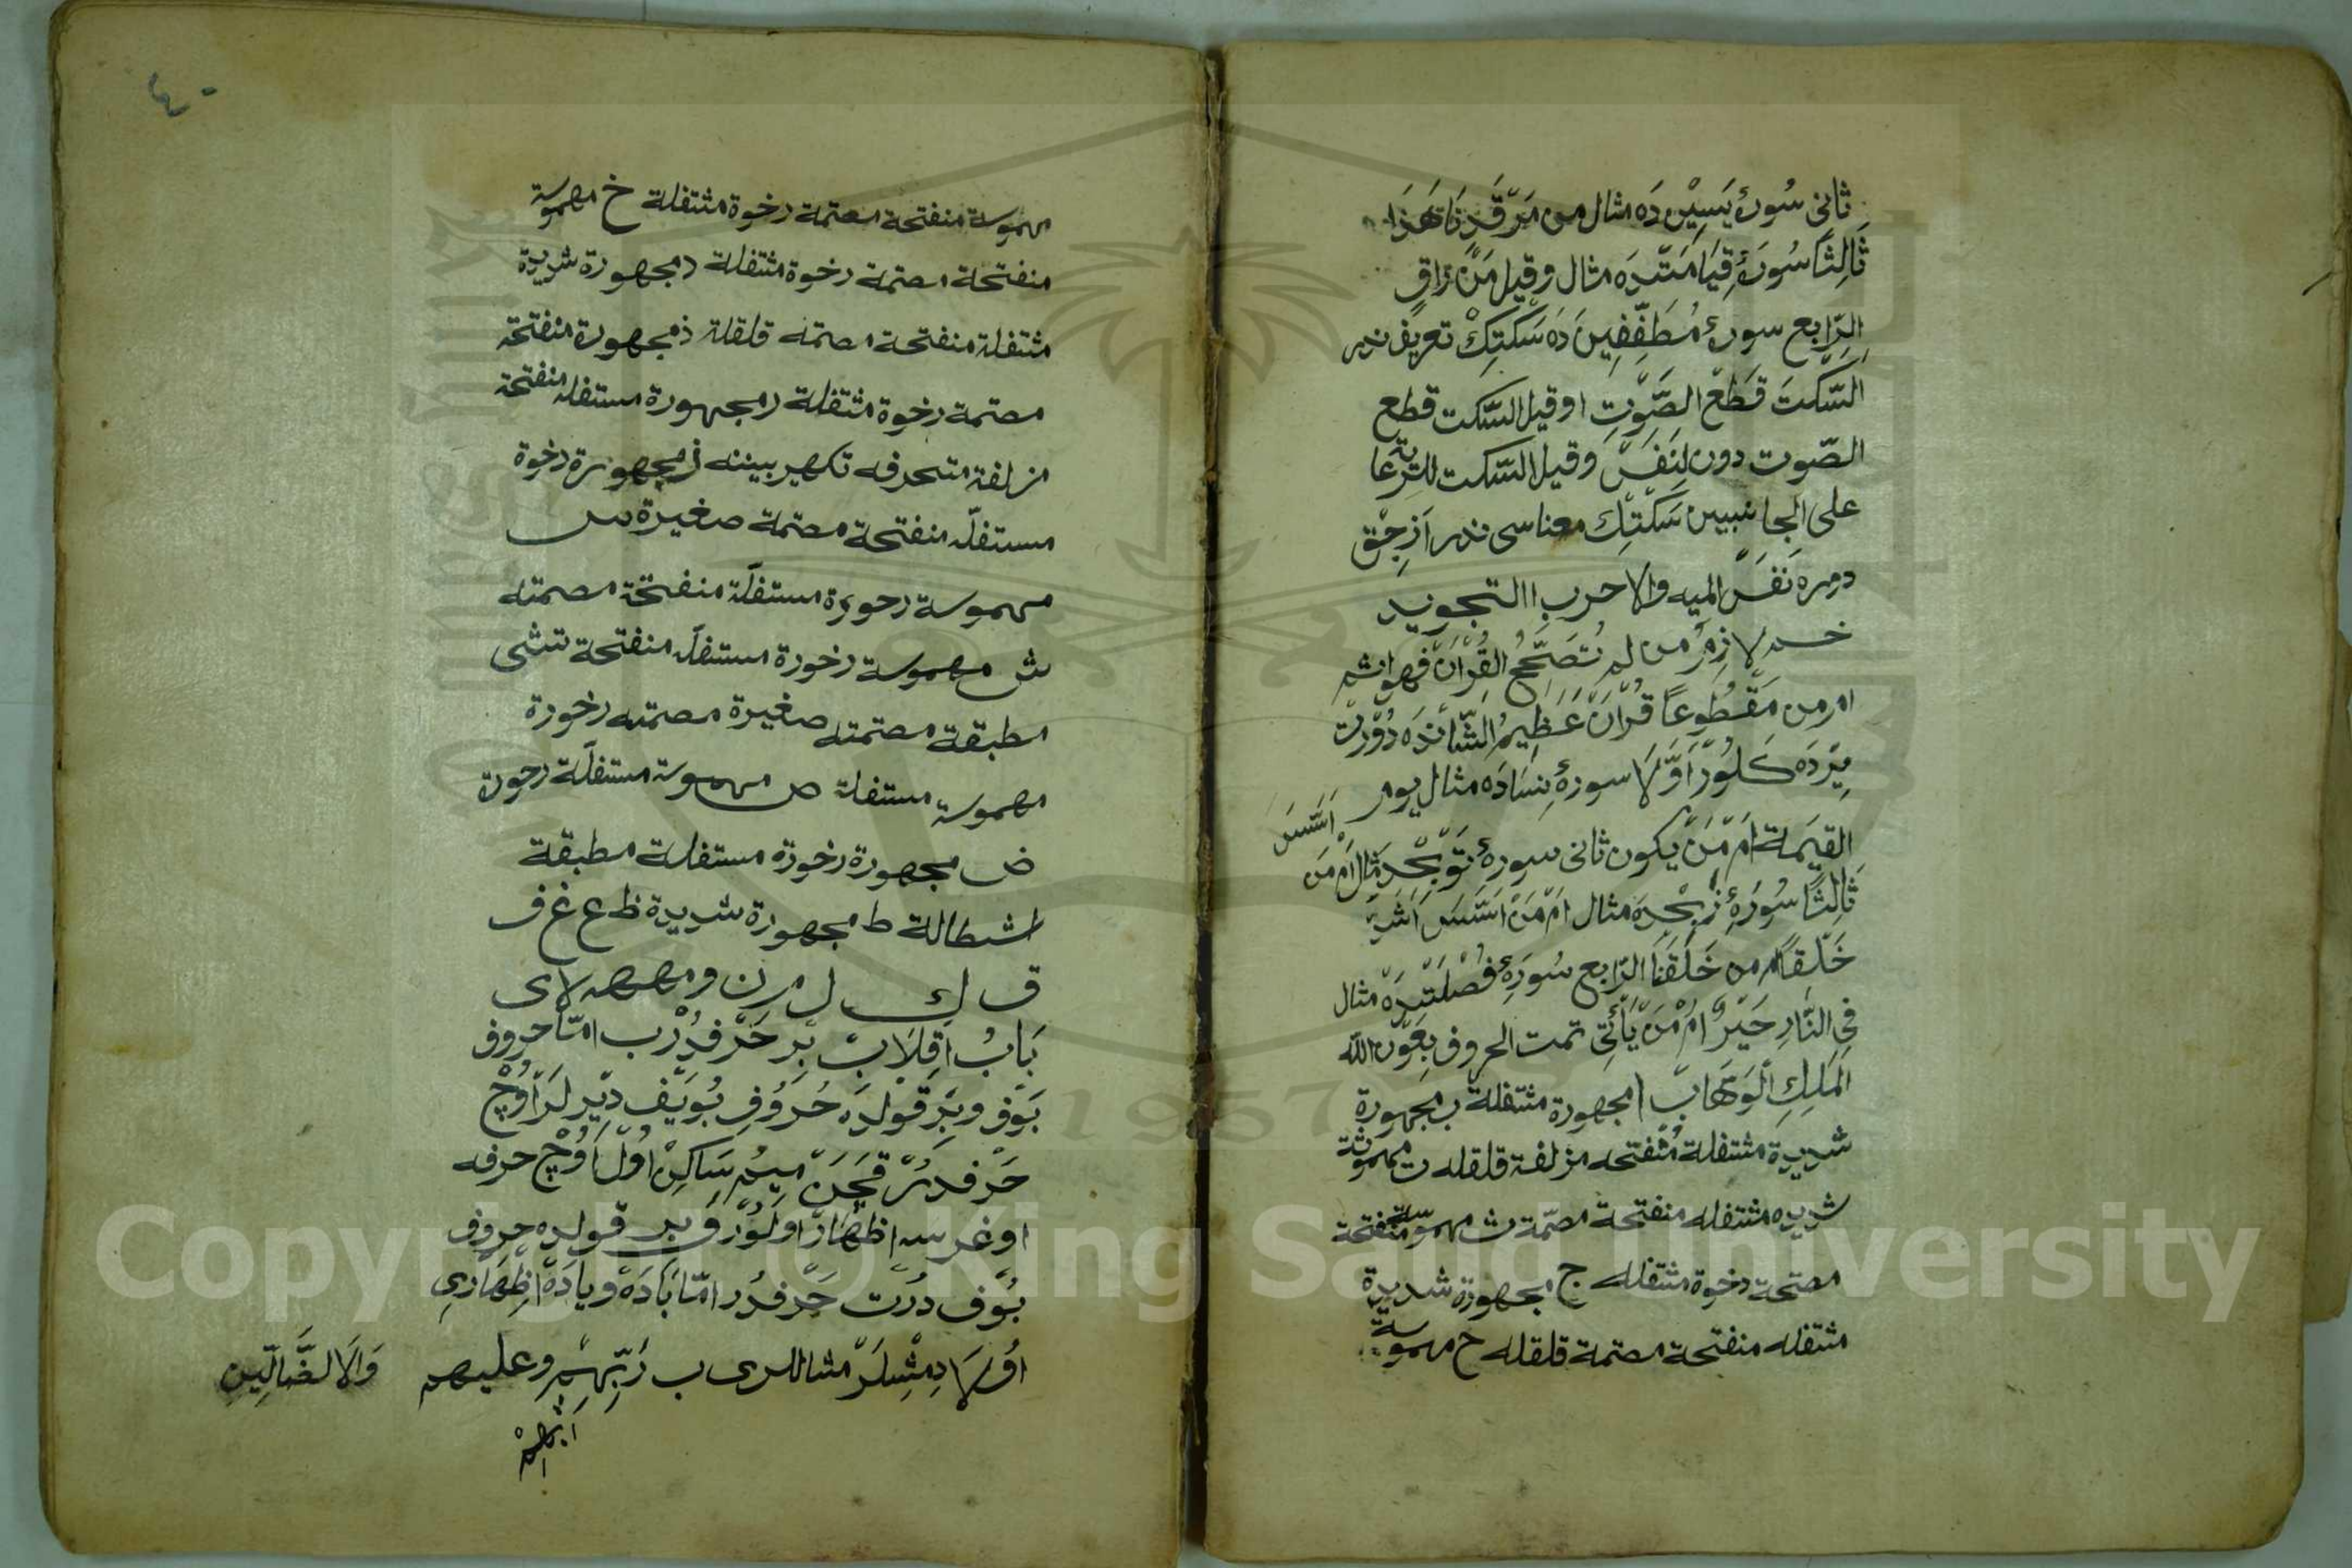 ثانى سُورۀ يَسِيْن دَه مثال من مَرْقَدِنَا هَذَا
ثَالِثًا سُورَۀ قِيَامَتَدَه مثال وقيل مَنْ رَاقٍ
الرَّابع سورۀ مُطَفِّفِينَ دَه سَكْتِكْ تعريفى ندر
اَلسَّكتَ قَطْعُ الصَّوْتِ او قيل السّكت قطع
الصّوت دون لِنَفَسْ وقيل السّكت
على الجانبين سَكْتِكْ معناسى ندر اَزِجِقْ
دمره نَفَسْ الميه والاحرب التجويد
لازِمٌ من لم يُصَحِّحُ القُرْآنَ فهو اثم
ام من مَقْطُوعًا قُرْآنْ عَظِيمُ الشَّانْدَه دُوْرْت
يِرْدَه كَلُورْ اَوَّلَا سورۀ نِسَادَه مثال يوم
القيمة اَمْ مَنْ يكون ثانى سورۀ مثال اَمْ مَنْ
اَسَّسَ
ثَالِثًا سُورَۀ مثال اَمْ مَنْ اَسَّسَ اَشَدّ
خَلْقًا اَمْ من خَلَقْنَا الرّابع سُورَۀ فُصِّلَتْدَه مثال
فِى النَّارِ خَيْرٌ اَمْ مَنْ يَأْتِى تمت الحروف بِعَوْن الله
الْمَلِكِ الْوَهَّابْ ا مجهورة مثتفلة ب مجهورة
شديدة مثتفلة مُنْفتحه مزلفة قلقله ت مهموثة
شديده مثتفله منفتحة مصمّة ث مهموسة منفتحة
مصتحة رخوة مثتفله ج مجهورة شديدة
مثتفله منفتحة مصتمة قلقله ح مهموسة
٤٠
مهموسة منفتحة مصتمة رخوة مثتفلة خ مهموسة
منفتحة مصتمة رخوة مثتفلة د مجهورة شديدة
مثتفلة منفتحة مصتمه قلقلة ذ مجهورة منفتحة
مصتمة رخوة مثتفلة ر مجهورة مستفله منفتحة
مزلفة متحرفه تكهير بيننه ز مجهورة رخوة
مستفلّه منفتحة مصتمة صغيرة س
مهموسة رحورة مستفلّة منفتحة مصمته
ش مهموسة رخورة مستفلّه منفتحة تتشى
مطبقة مصتمته صغيرة مصمته رخورة
مهموسة مستفلة ص مهموسة مستفلّة رحوة
ض مجهورة رخورة مستفلة مطبقة
اشطالة ط مجهورة شديدة ظ ع غ ف
ق ك ل م ن و ه لا ى
بَابُ اِقْلَابْ بِرْ حَرْفدُرْ ب امّا حروف
بَوْف وبِرْ قَوْلدَه حُرُوُفِ بُوَيْف دِيْرلَر اُوْچْ
حَرْفدُرْ قَچَنْ مِيمْ سَاكِنْ اُولْ اُوْچْ حرفه
اوغرسه اِظْهَارْ اولُوُر وَبر قولده حروف
بُوْف دُرْت حَرْفدُر امّا بَادَه ويادَه اِظْهَارِى
اوّلَا دِمْشلَرْ مثاللرى ب رَبِّهِمْ وعليهم
وَالَا الضَّالِّين